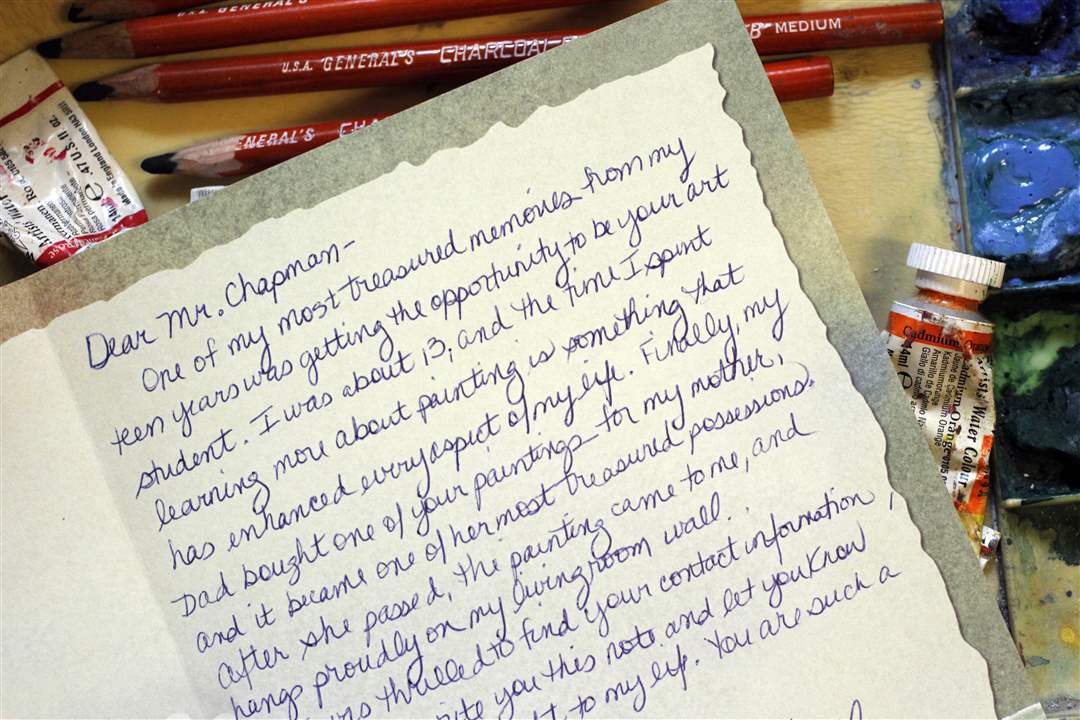 U.S.A. GENERAL'S
U.S.A. GENERAL'S CHARCOAL
MEDIUM
NERAL'S CHA
.47 U.S. fl. oz.
Dear Mr. Chapman-
One of my most treasured memories from my
teen years was getting the opportunity to be your art
student. I was about 13, and the time I spent
learning more about painting is something that
has enhanced every aspect of my life. Finally, my
Dad bought one of your paintings for my mother,
and it became one of her most treasured possessions.
After she passed, the painting came to me, and
hangs proudly on my living room wall.
thrilled to find your contact information,
you this note and let you know
to my life. You are such a
Cadmium
Artists' Water Colour
Cadmium Orange